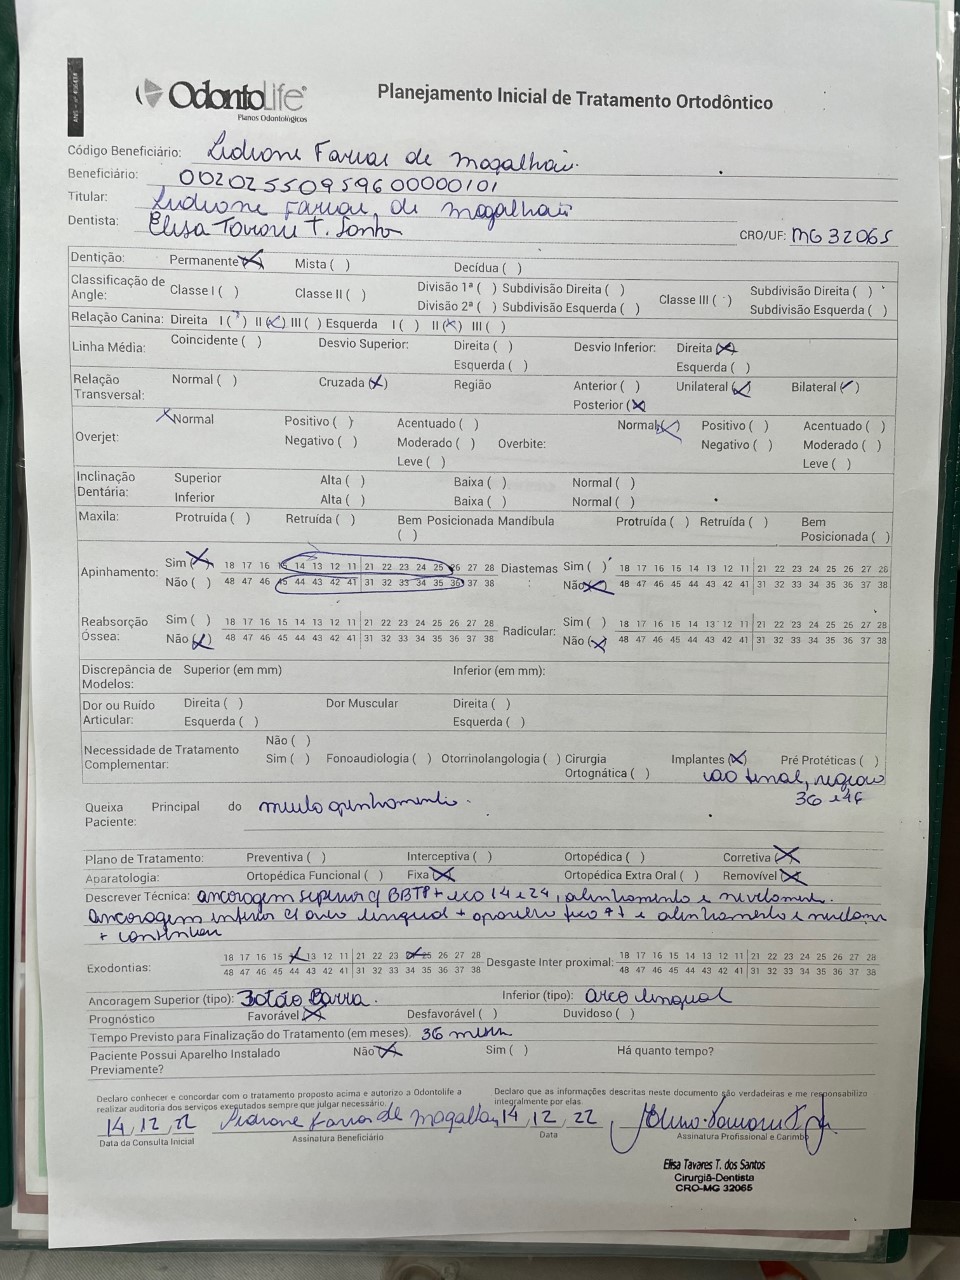 OdontoLife
Planos Odontológicos
Planejamento Inicial de Tratamento Ortodôntico
Código Beneficiário: Lidione Farias de Magalhães
Beneficiário: 00202550959600000101
Titular: Lidione Farias de Magalhães
Dentista: Elisa Tavares T. Santos CRO/UF: MG 32065
Dentição: Permanente (X) Mista ( ) Decídua ( )
Classificação de Angle: Classe I ( ) Classe II ( ) Divisão 1ª ( ) Subdivisão Direita ( ) Classe III ( ) Subdivisão Direita ( )
Divisão 2ª ( ) Subdivisão Esquerda ( ) Subdivisão Esquerda ( )
Relação Canina: Direita I ( ) II (X) III ( ) Esquerda I ( ) II (X) III ( )
Linha Média: Coincidente ( ) Desvio Superior: Direita ( ) Desvio Inferior: Direita (X)
Esquerda ( ) Esquerda ( )
Relação Transversal: Normal ( ) Cruzada (X) Região Anterior ( ) Unilateral (X) Bilateral ( )
Posterior (X)
X Normal Positivo ( ) Acentuado ( ) Normal (X) Positivo ( ) Acentuado ( )
Overjet: Negativo ( ) Moderado ( ) Overbite: Negativo ( ) Moderado ( )
Leve ( ) Leve ( )
Inclinação Dentária: Superior Alta ( ) Baixa ( ) Normal ( )
Inferior Alta ( ) Baixa ( ) Normal ( )
Maxila: Protruída ( ) Retruída ( ) Bem Posicionada ( ) Mandíbula Protruída ( ) Retruída ( ) Bem Posicionada ( )
Apinhamento: Sim (X) 18 17 16 15 14 13 12 11 21 22 23 24 25 26 27 28 Diastemas: Sim ( ) 18 17 16 15 14 13 12 11 21 22 23 24 25 26 27 28
Não ( ) 48 47 46 45 44 43 42 41 31 32 33 34 35 36 37 38 Não (X) 48 47 46 45 44 43 42 41 31 32 33 34 35 36 37 38
Reabsorção Óssea: Sim ( ) 18 17 16 15 14 13 12 11 21 22 23 24 25 26 27 28 Radicular: Sim ( ) 18 17 16 15 14 13 12 11 21 22 23 24 25 26 27 28
Não (X) 48 47 46 45 44 43 42 41 31 32 33 34 35 36 37 38 Não (X) 48 47 46 45 44 43 42 41 31 32 33 34 35 36 37 38
Discrepância de Modelos: Superior (em mm) Inferior (em mm):
Dor ou Ruído Articular: Direita ( ) Dor Muscular Direita ( )
Esquerda ( ) Esquerda ( )
Necessidade de Tratamento Complementar: Não ( )
Sim ( ) Fonoaudiologia ( ) Otorrinolangologia ( ) Cirurgia Ortognática ( ) Implantes (X) Pré Protéticas ( )
ao final, região
36 e 46
Queixa Principal do Paciente: muito apinhamento.
Plano de Tratamento: Preventiva ( ) Interceptiva ( ) Ortopédica ( ) Corretiva (X)
Aparatologia: Ortopédica Funcional ( ) Fixa (X) Ortopédica Extra Oral ( ) Removível (X)
Descrever Técnica: ancoragem superior c/ BBTP + exo 14 e 24, alinhamento e nivelamento.
ancoragem inferior c/ arco lingual + aparelho fixo e alinhamento e
+
Exodontias: 18 17 16 15 14 13 12 11 21 22 23 24 25 26 27 28 Desgaste Inter proximal: 18 17 16 15 14 13 12 11 21 22 23 24 25 26 27 28
48 47 46 45 44 43 42 41 31 32 33 34 35 36 37 38 48 47 46 45 44 43 42 41 31 32 33 34 35 36 37 38
Ancoragem Superior (tipo): Botão Barra. Inferior (tipo): arco lingual
Prognóstico Favorável (X) Desfavorável ( ) Duvidoso ( )
Tempo Previsto para Finalização do Tratamento (em meses). 36 meses
Paciente Possui Aparelho Instalado Previamente? Não (X) Sim ( ) Há quanto tempo?
Declaro conhecer e concordar com o tratamento proposto acima e autorizo a Odontolife a realizar auditoria dos serviços executados sempre que julgar necessário.
Declaro que as informações descritas neste documento são verdadeiras e me responsabilizo integralmente por elas.
14, 12, 22 Lidione Farias de Magalhães 14, 12, 22
Data da Consulta Inicial Assinatura Beneficiário Data Assinatura Profissional e Carimbo
Elisa Tavares T. dos Santos
Cirurgiã-Dentista
CRO-MG 32065